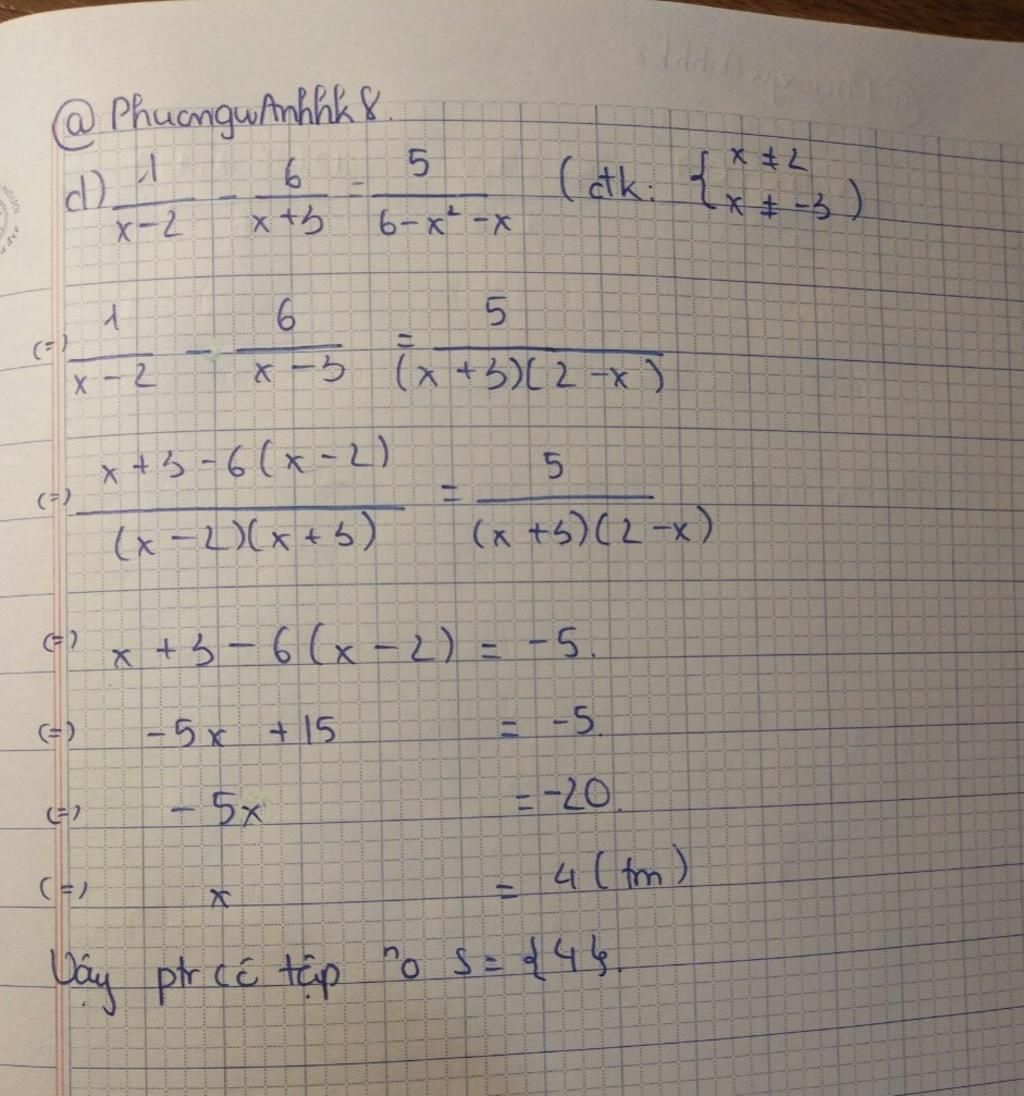 @ PhuongwAnhhk8.
d) 1/(x-2) - 6/(x+3) = 5/(6-x²-x) (đk: { x ≠ 2 x ≠ -3 )
(=) 1/(x-2) - 6/(x-3) = 5/((x+3)(2-x))
(=) (x+3-6(x-2))/((x-2)(x+3)) = 5/((x+3)(2-x))
(=) x+3-6(x-2) = -5.
(=) -5x +15 = -5.
(=) -5x = -20.
(=) x = 4 (tm)
Vậy ptr có tập n⁰ S = {4}.